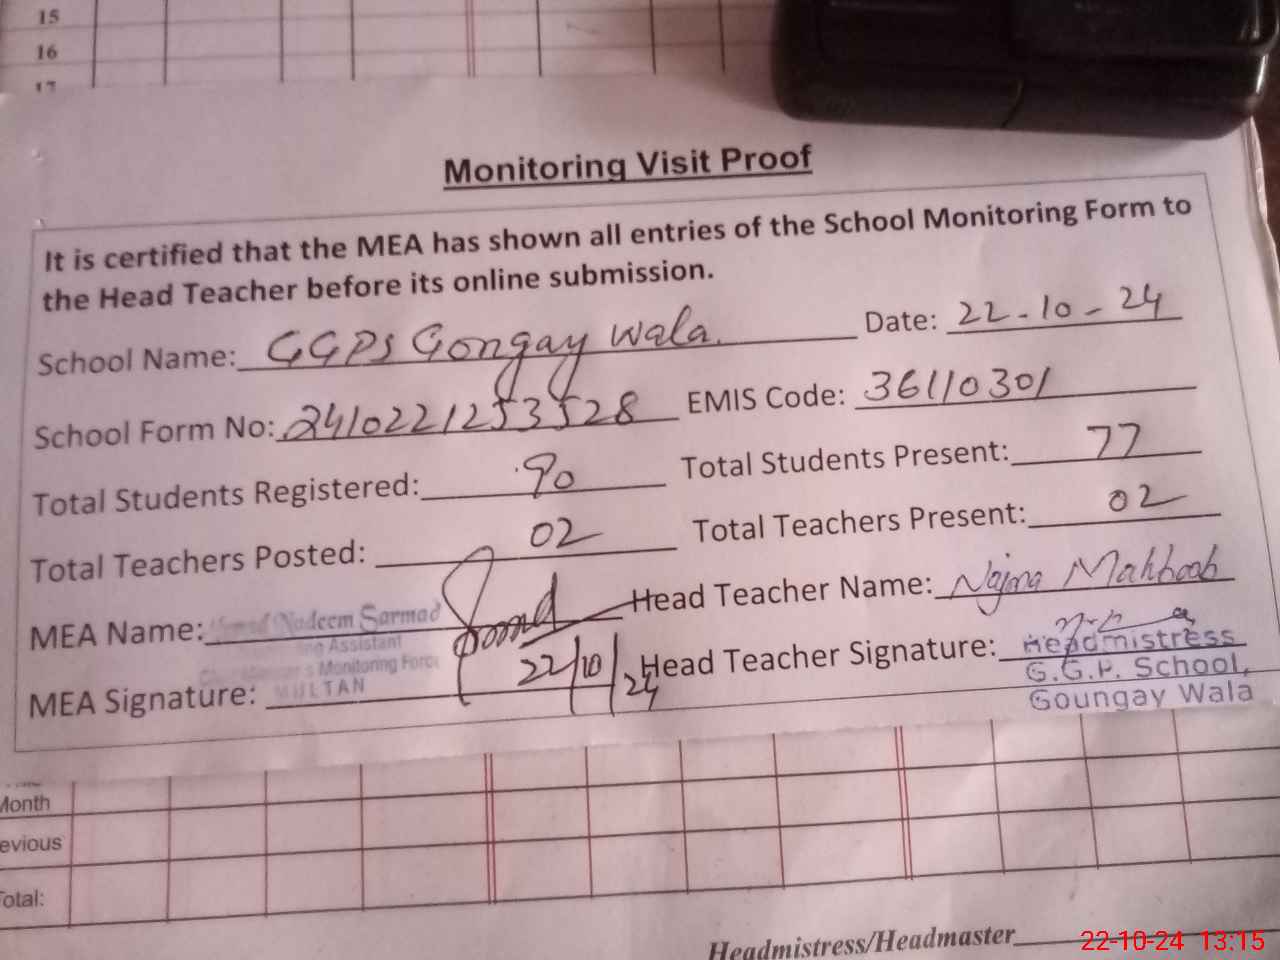 15
16
17
Monitoring Visit Proof
It is certified that the MEA has shown all entries of the School Monitoring Form to
the Head Teacher before its online submission.
School Name: GGPS Gongay wala. Date: 22-10-24
School Form No: 2410221253528 EMIS Code: 36110301
Total Students Registered: 90 Total Students Present: 77
Total Teachers Posted: 02 Total Teachers Present: 02
MEA Name: Nadeem Sarmad Head Teacher Name: Najma Mahboob
Assistant
Monitoring Force
MEA Signature: MULTAN 22/10/24 Head Teacher Signature: Headmistress
G.G.P. School,
Goungay Wala
Month
evious
Total:
Headmistress/Headmaster
22-10-24 13:15